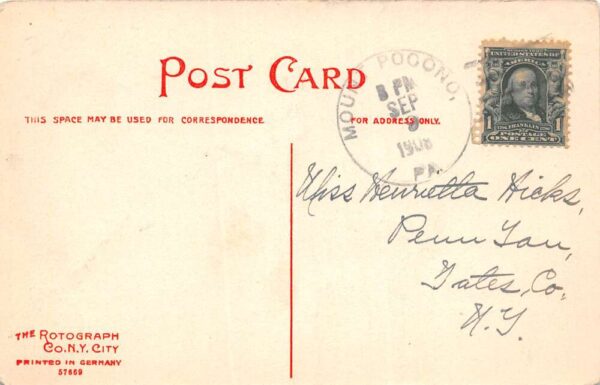 POST CARD
THIS SPACE MAY BE USED FOR CORRESPONDENCE.
FOR ADDRESS ONLY.
MOUNT POCONO,
8 PM
SEP
9
1908
PA.
UNITED STATES OF
AMERICA
1 FRANKLIN 1
POSTAGE
ONE CENT
Miss Henrietta Hicks,
Penn Yan,
Yates, Co.
N.Y.
THE ROTOGRAPH
CO. N.Y. CITY
PRINTED IN GERMANY
57669